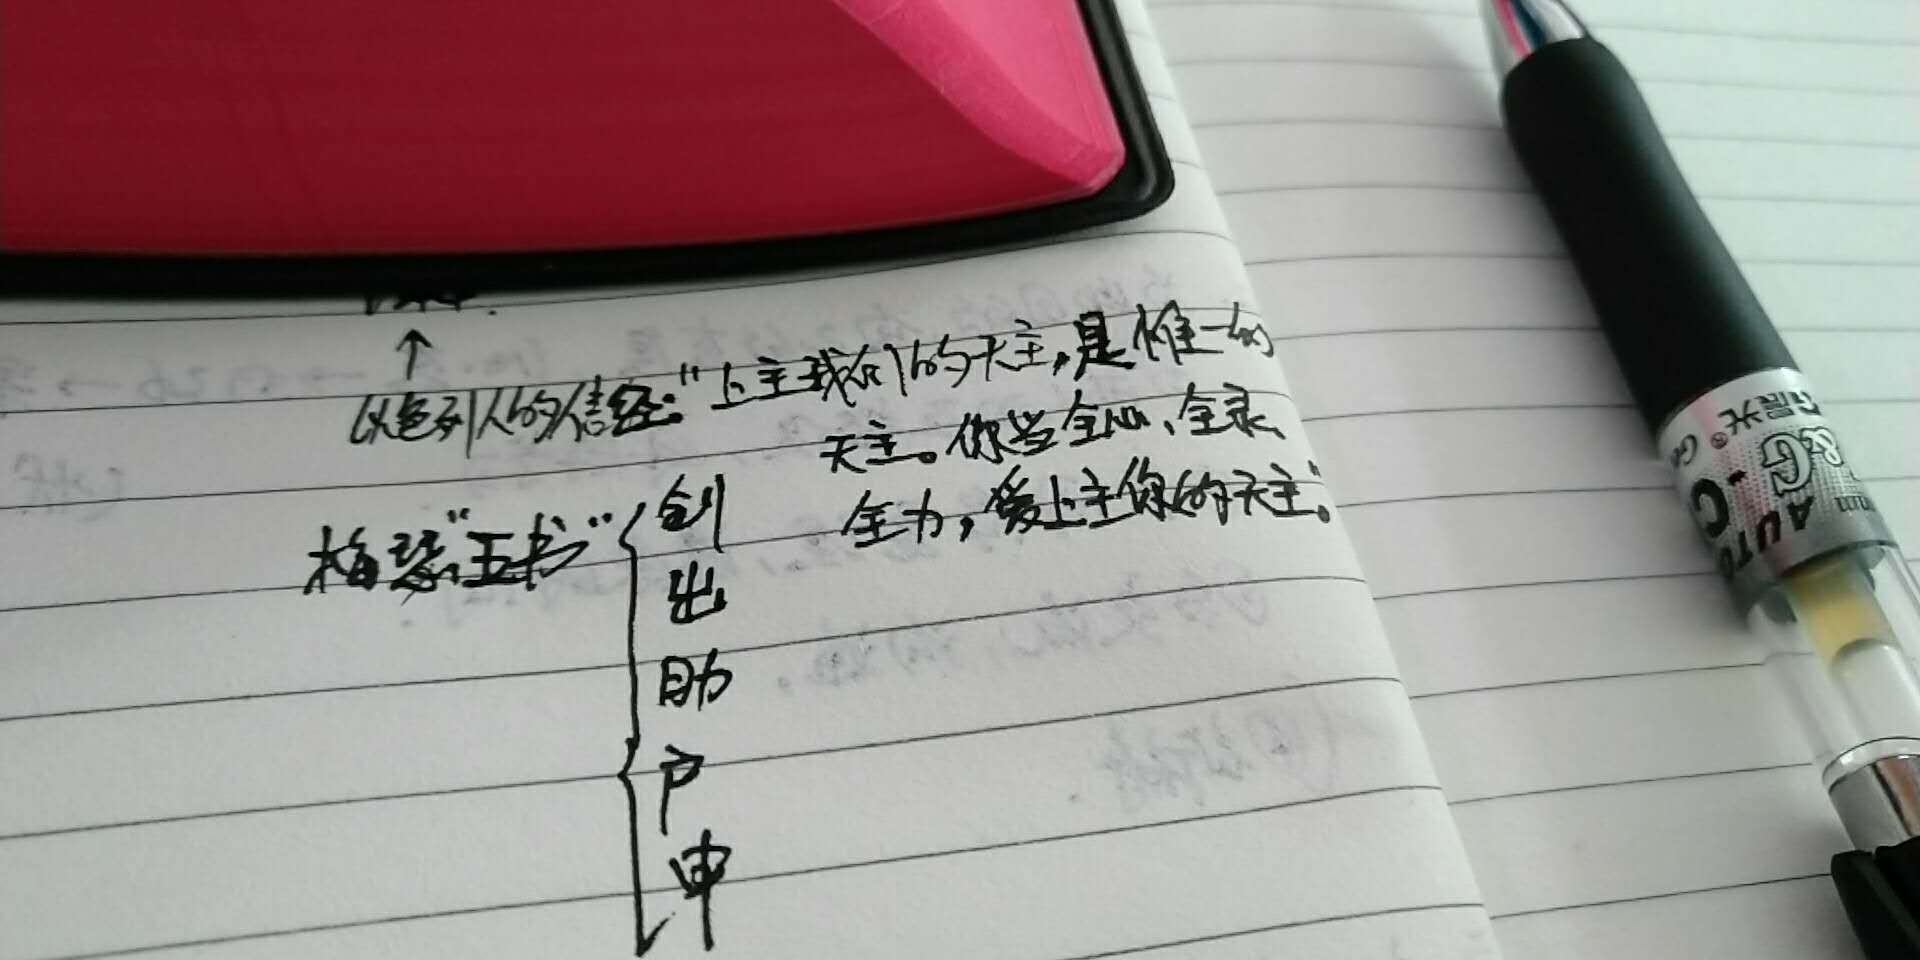 ↑
以色列人的信经:“上主我们的天主,是惟一的
天主。你当全心、全灵、
全力,爱上主你的天主”。
梅瑟“五书”
创
出
肋
户
申
晨光®
&G
AUTO